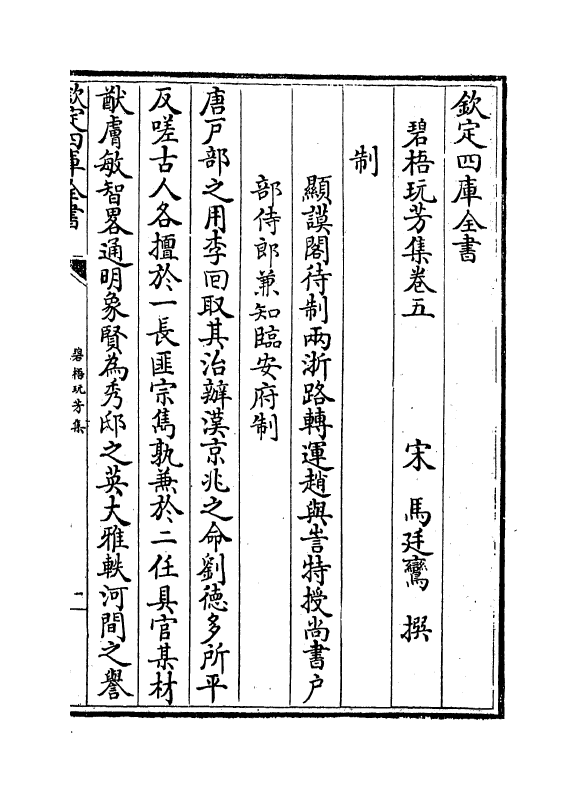 欽定四庫全書
碧梧玩芳集卷五
宋 馬廷鸞 撰
制
顯謨閣待制兩浙路轉運趙與訔特授尚書户
部侍郎兼知臨安府制
唐戸部之用李回取其治辦漢京兆之命劉德多所平
反嗟古人各擅於一長匪宗雋孰兼於二任具官某材
猷膚敏智畧通明象賢為秀邸之英大雅軼河間之譽
欽定四庫全書
碧梧玩芳集
一